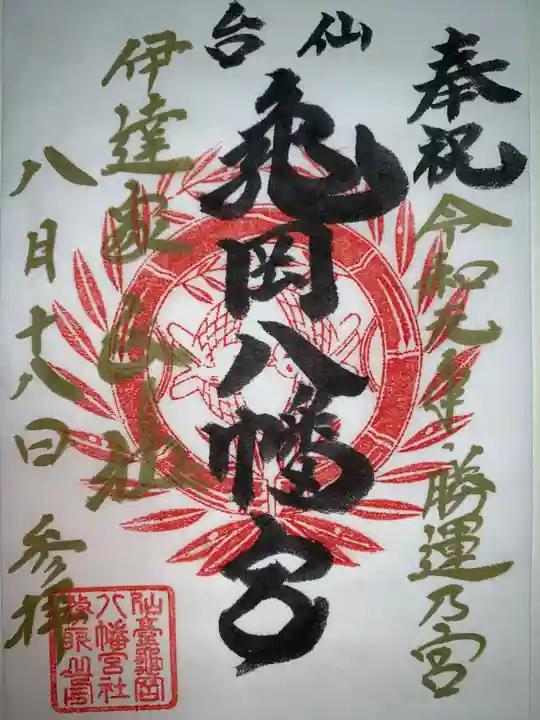 奉祝
令和元年 勝運乃宮
仙台
亀岡八幡宮
伊達家
八月十八日 参拝
仙臺龜岡
八幡宮社